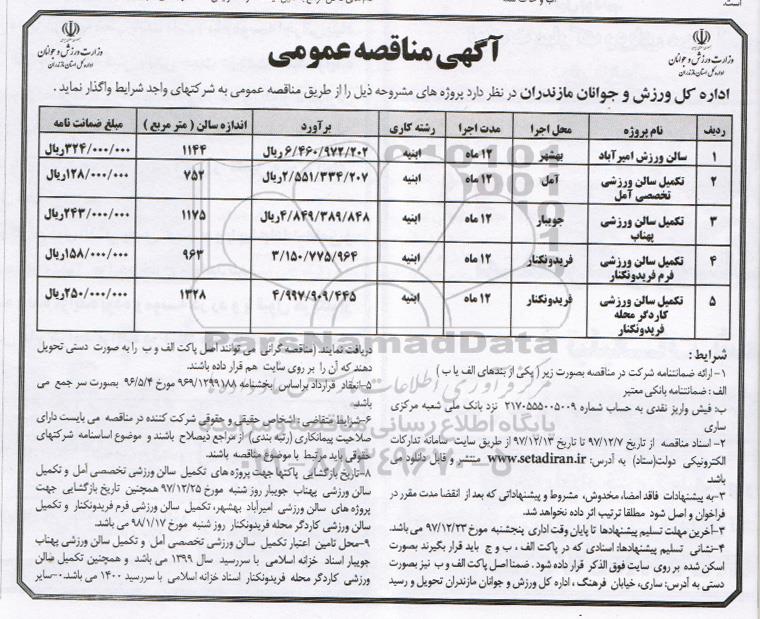 آگهی مناقصه عمومی
وزارت ورزش و جوانان
اداره کل استان مازندران
وزارت ورزش و جوانان
اداره کل استان مازندران
اداره کل ورزش و جوانان مازندران در نظر دارد پروژه های مشروحه ذیل را از طریق مناقصه عمومی به شرکتهای واجد شرایط واگذار نماید .
ردیف نام پروژه محل اجرا مدت اجرا رشته کاری برآورد اندازه سالن ( متر مربع ) مبلغ ضمانت نامه
۱ سالن ورزش امیرآباد بهشهر ۱۲ ماه ابنیه ۶/۴۶۰/۹۷۲/۲۰۲ ریال ۱۱۴۴ ۳۲۴/۰۰۰/۰۰۰ریال
۲ تکمیل سالن ورزشی تخصصی آمل آمل ۱۲ ماه ابنیه ۲/۵۵۱/۳۳۴/۲۰۷ریال ۷۵۲ ۱۲۸/۰۰۰/۰۰۰ریال
۳ تکمیل سالن ورزشی پهناب جویبار ۱۲ ماه ابنیه ۴/۸۴۹/۳۸۹/۸۴۸ریال ۱۱۷۵ ۲۴۳/۰۰۰/۰۰۰ریال
۴ تکمیل سالن ورزشی فرم فریدونکنار فریدونکنار ۱۲ ماه ابنیه ۳/۱۵۰/۷۷۵/۹۶۴ ۹۶۳ ۱۵۸/۰۰۰/۰۰۰ریال
۵ تکمیل سالن ورزشی کاردگر محله فریدونکنار فریدونکنار ۱۲ ماه ابنیه ۴/۹۹۷/۹۰۹/۴۴۵ ۱۳۲۸ ۲۵۰/۰۰۰/۰۰۰ریال
شرایط :
۱- ارائه ضمانتنامه شرکت در مناقصه بصورت زیر ( یکی از بندهای الف یا ب )
الف : ضمانتنامه بانکی معتبر
ب: فیش واریز نقدی به حساب شماره ۲۱۷۰۵۵۵۰۰۵۰۰۹ نزد بانک ملی شعبه مرکزی
ساری
۲- اسناد مناقصه از تاریخ ۹۷/۱۲/۷ تا تاریخ ۹۷/۱۲/۱۳ از طریق سایت سامانه تدارکات
الکترونیکی دولت(ستاد) به آدرس: www.setadiran.ir منتشر و قابل دانلود می
باشد
۳-به پیشنهادات فاقد امضا، مخدوش، مشروط و پیشنهاداتی که بعد از انقضا مدت مقرر در
فراخوان و اصل شود مطلقا ترتیب اثر داده نخواهد شد.
۳-آخرین مهلت تسلیم پیشنهادها تا پایان وقت اداری پنجشنبه مورخ ۹۷/۱۲/۲۳ می باشد.
۴-نشانی تسلیم پیشنهادها: اسنادی که در پاکت الف ، ب و ج باید قرار بگیرند بصورت
اسکن شده بر روی سایت فوق الذکر قرار داده شود . ضمنا اصل پاکت الف و ب نیز بصورت
دستی به آدرس: ساری، خیابان فرهنگ ، اداره کل ورزش و جوانان مازندران تحویل و رسید
دریافت نمایند (مناقصه گرانی می توانند اصل پاکت الف و ب را به صورت دستی تحویل
دهند که آن را بر روی سایت هم قرار داده باشند.
۵-انعقاد قرارداد براساس بخشنامه ۹۶۹/۱۲۹۹۱۸۸ مورخ ۹۶/۵/۴ بصورت سر جمع می
باشد
۶-شرایط متقاضی: اشخاص حقیقی و حقوقی شرکت کننده در مناقصه می بایست دارای
صلاحیت پیمانکاری (رتبه بندی ) از مراجع ذیصلاح باشند و موضوع اساسنامه شرکتهای
حقوقی باید مرتبط با موضوع مناقصه باشند.
۸-تاریخ بازگشایی پاکتها جهت پروژه های تکمیل سالن ورزشی تخصصی آمل و تکمیل
سالن ورزشی پهناب جویبار روز شنبه مورخ ۹۷/۱۲/۲۵ همچنین تاریخ بازگشایی جهت
پروژه های سالن ورزشی امیرآباد بهشهر، تکمیل سالن ورزشی فرم فریدونکنار و تکمیل
سالن ورزشی کاردگر محله فریدونکنار روز شنبه مورخ ۹۸/۱/۱۷ می باشد.
۹-محل تامین اعتبار تکمیل سالن ورزشی تخصصی آمل و تکمیل سالن ورزشی پهناب
جویبار اسناد خزانه اسلامی با سررسید سال ۱۳۹۹ می باشد و همچنین تکمیل سالن
ورزشی کاردگر محله فریدونکنار اسناد خزانه اسلامی با سررسید ۱۴۰۰ می باشد.۰-سایر
ParsNamadData